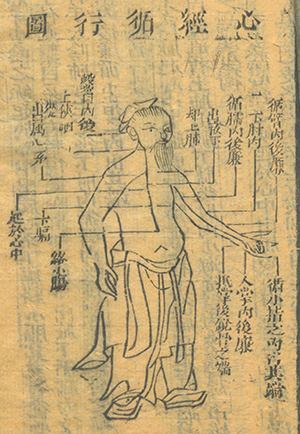 心經循行圖
循臂內後廉
下肘內
循臑內後廉
出腋下
却上肺
上俠咽
出屬心系
起於心中
下膈
絡小腸
循小指之內出其端
入掌內後廉
抵掌後銳骨之端